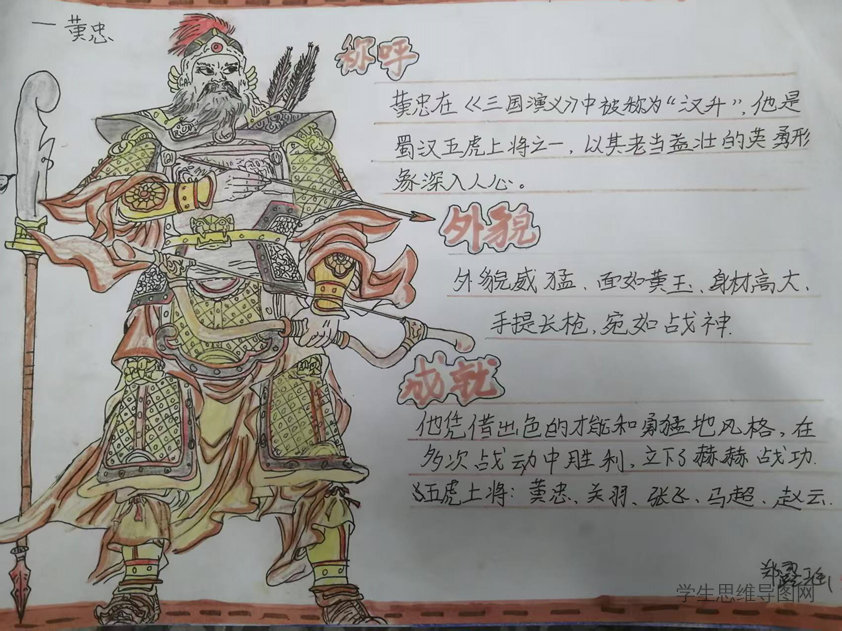 一黄忠
称呼
黄忠在《三国演义》中被称为“汉升”,他是
蜀汉五虎上将之一,以其老当益壮的英勇形
象深入人心。
外貌
外貌威猛、面如黄玉、身材高大、
手提长枪,宛如战神.
成就
他凭借出色的才能和勇猛地风格,在
多次战动中胜利,立下了赫赫战功.
五虎上将:黄忠、关羽、张飞、马超、赵云.
学生思维导图网